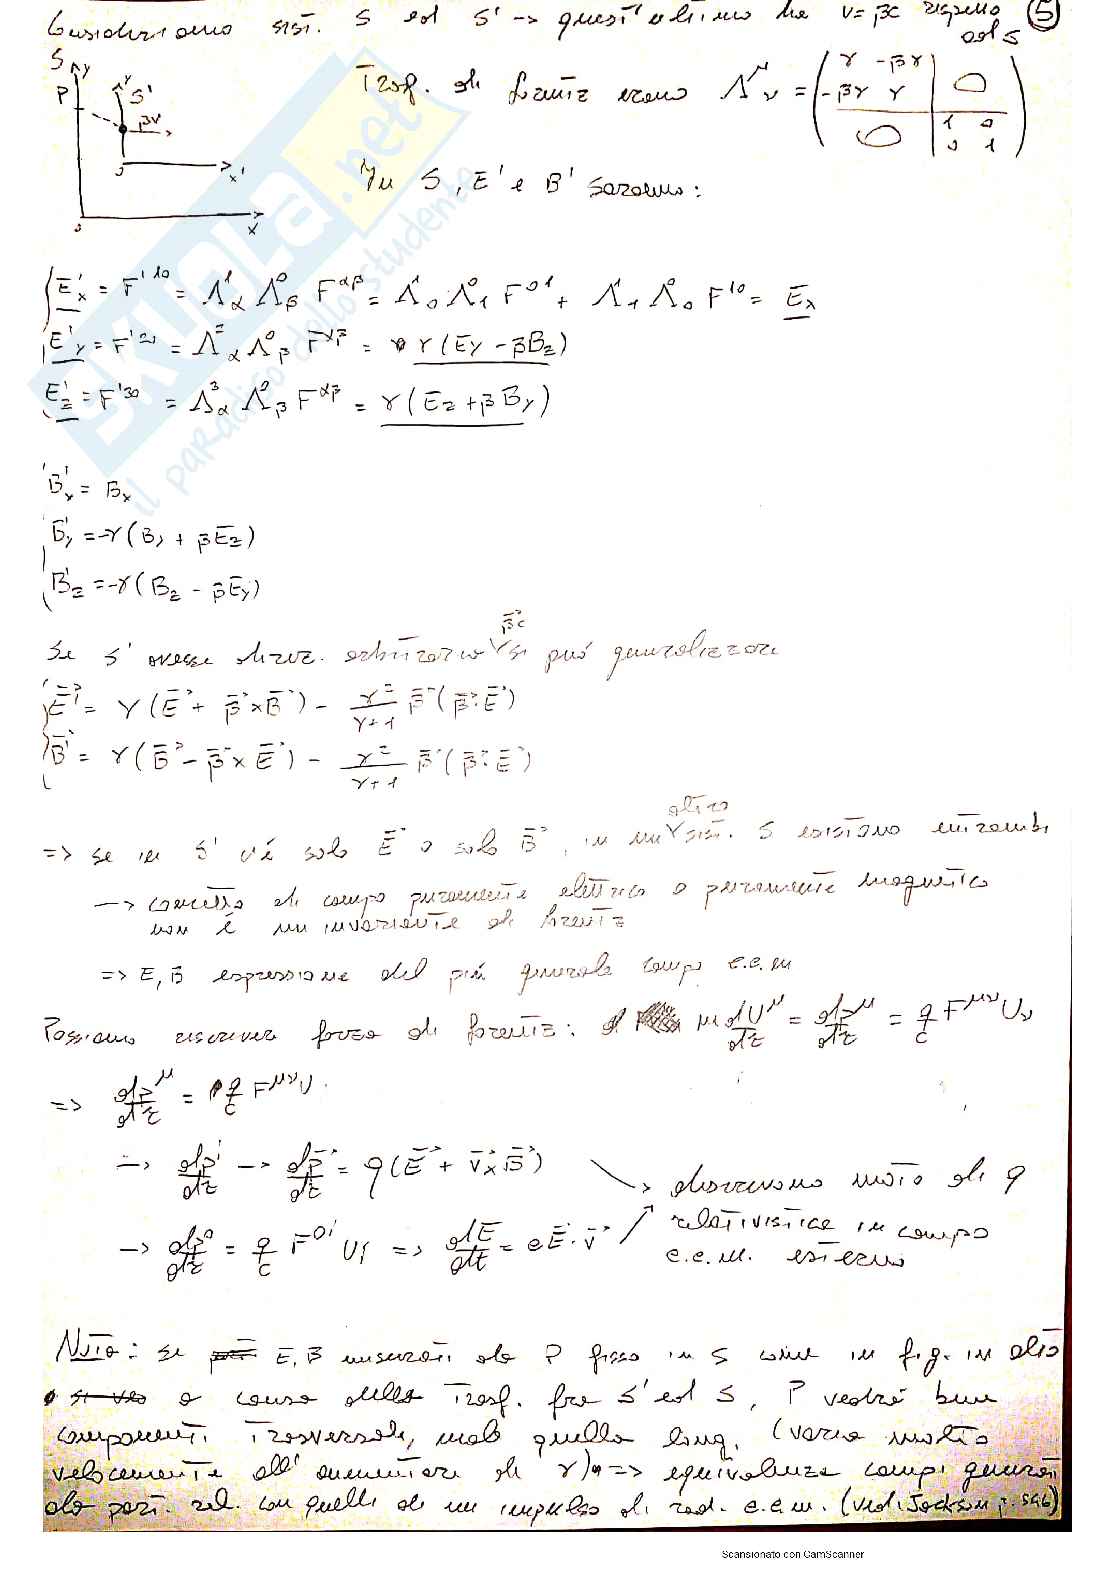 Consideriamo sist. S ed S' -> quest'ultimo ha v = βc rispetto ad S
5
S y
P
y S'
βv
x'
x
Trasf. di Lorentz erano Λ^μ_ν = ( γ -βγ | 0
-βγ γ |
0 | 1 0
0 1 )
In S, E' e B' saranno:
E'_x = F'^10 = Λ^1_α Λ^0_β F^αβ = Λ^1_0 Λ^0_1 F^01 + Λ^1_1 Λ^0_0 F^10 = E_x
E'_y = F'^20 = Λ^2_α Λ^0_β F^αβ = γ(E_y - βB_z)
E'_z = F'^30 = Λ^3_α Λ^0_β F^αβ = γ(E_z + βB_y)
B'_x = B_x
B'_y = -γ(B_y + βE_z)
B'_z = -γ(B_z - βE_y)
Se S' avesse direz. arbitraria βc si può generalizzare
E' = γ(E + β×B) - γ²/(γ+1) β(β·E)
B' = γ(B - β×E) - γ²/(γ+1) β(β·E)
=> se in S' v'è solo E o solo B, in un altro sist. S esistono entrambi
-> concetto di campo puramente elettrico o puramente magnetico
non è un invariante di Lorentz
=> E, B espressione del più generale campo e.e.m
Possiamo riscrivere forza di Lorentz: m dU^μ/dτ = dp^μ/dτ = q/c F^μν U_ν
=> dp^μ/dτ = q/c F^μν U
-> dp^i/dτ -> dp/dτ = q(E + v×B)
-> dp^0/dτ = q/c F^0i U_i => dE/dt = eE·v
descrivono moto di q
relativistica in campo
e.e.m. esterno
Nota: se E, B misurati da P fisso in S come in fig. in alto
a causa della trasf. fra S' ed S, P vedrà bene
componenti trasversali, male quella long. (varia molto
velocemente all'aumentare di γ) => equivalenza campi generati
da part. rel. con quelli di un impulso di rad. e.e.m. (vedi Jackson p. 546)
SKUOLA.net
il paradiso dello studente
Scansionato con CamScanner